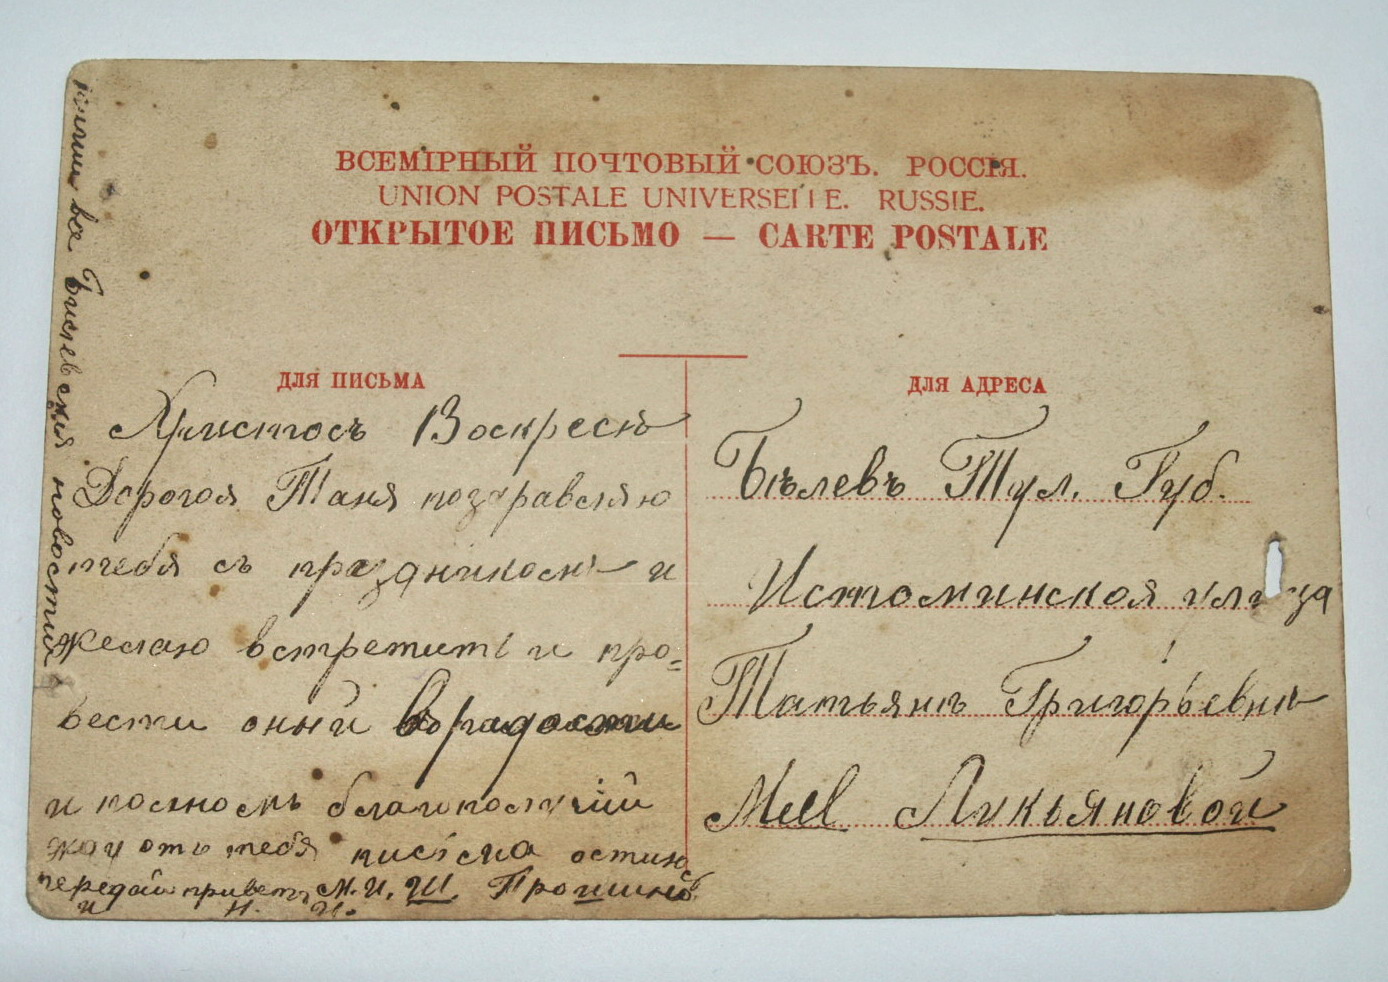 ВСЕМІРНЫЙ ПОЧТОВЫЙ СОЮЗЪ. РОССІЯ.
UNION POSTALE UNIVERSELLE. RUSSIE.
ОТКРЫТОЕ ПИСЬМО — CARTE POSTALE
ДЛЯ ПИСЬМА
Христосъ Воскресъ
Дорогоя Таня поздравляю
тебя съ праздникомъ и
желаю встретить и про=
вести оный въ радости
и полномъ благополучіи
жду отъ тебя писіма остаюсь
передай приветъ М. И. Ш. Прошинъ
и Н. И.
пиши все Бѣлевския новости
ДЛЯ АДРЕСА
Бѣлевъ Тул. Губ.
Истоминская улица
Татьянѣ Григорьевнѣ
Mell Лукьяновой